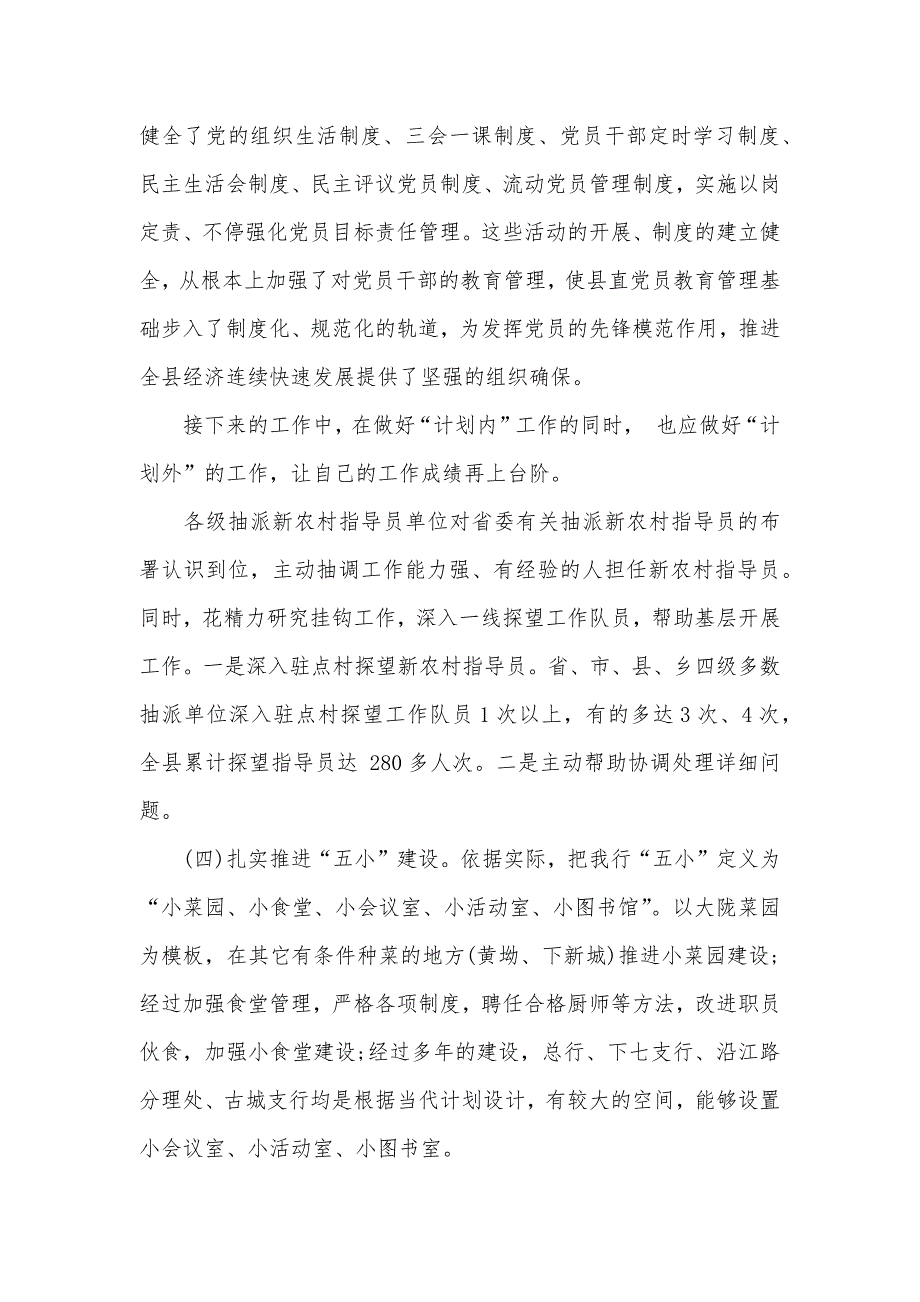 健全了党的组织生活制度、三会一课制度、党员干部定时学习制度、
民主生活会制度、民主评议党员制度、流动党员管理制度，实施以岗
定责、不停强化党员目标责任管理。这些活动的开展、制度的建立健
全，从根本上加强了对党员干部的教育管理，使县直党员教育管理基
础步入了制度化、规范化的轨道，为发挥党员的先锋模范作用，推进
全县经济连续快速发展提供了坚强的组织确保。
接下来的工作中，在做好“计划内”工作的同时， 也应做好“计
划外”的工作，让自己的工作成绩再上台阶。
各级抽派新农村指导员单位对省委有关抽派新农村指导员的布
署认识到位，主动抽调工作能力强、有经验的人担任新农村指导员。
同时，花精力研究挂钩工作，深入一线探望工作队员，帮助基层开展
工作。一是深入驻点村探望新农村指导员。省、市、县、乡四级多数
抽派单位深入驻点村探望工作队员1次以上，有的多达3次、4次，
全县累计探望指导员达 280多人次。二是主动帮助协调处理详细问
题。
(四)扎实推进“五小”建设。依据实际，把我行“五小”定义为
“小菜园、小食堂、小会议室、小活动室、小图书馆”。以大陇菜园
为模板，在其它有条件种菜的地方(黄坳、下新城)推进小菜园建设;
经过加强食堂管理，严格各项制度，聘任合格厨师等方法，改进职员
伙食，加强小食堂建设;经过多年的建设，总行、下七支行、沿江路
分理处、古城支行均是根据当代计划设计，有较大的空间，能够设置
小会议室、小活动室、小图书室。